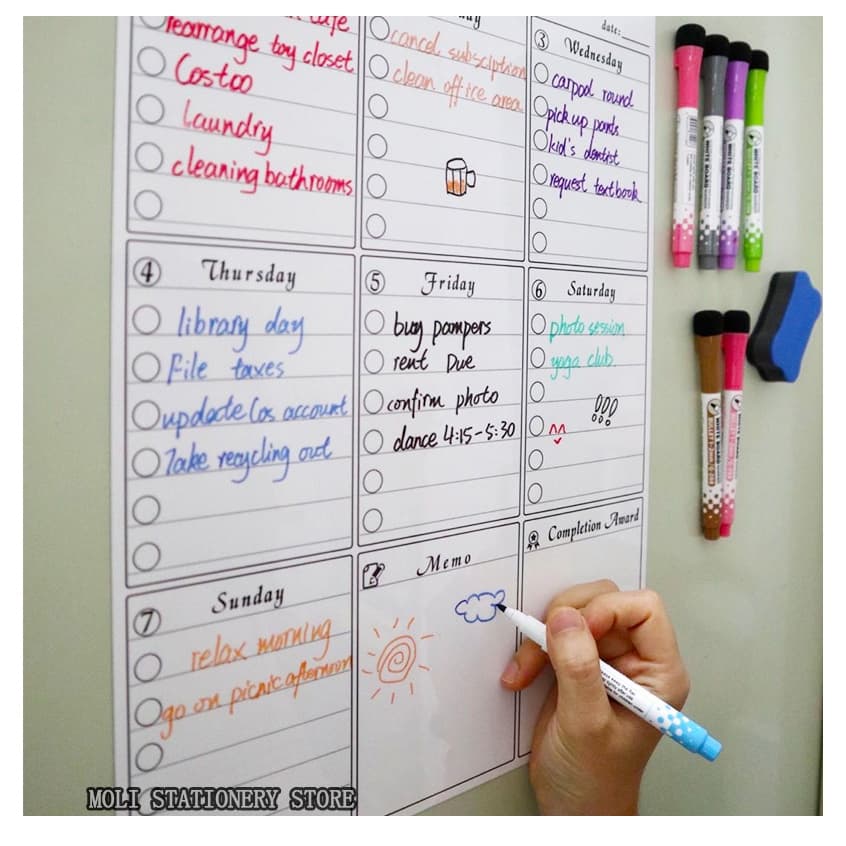 date:
③ Wednesday
rearrange toy closet
Costco
laundry
cleaning bathrooms
cancel subsciption
clean office area
carpool round
pick up pants
kid's dentist
request textbook
④ Thursday
library day
File taxes
update Cos account
Take recycling out
⑤ Friday
buy pampers
rent Due
confirm photo
dance 4:15-5:30
⑥ Saturday
photo session
yoga club
!!!
⑦ Sunday
relax morning
go on picnic afternoon
Memo
Completion Award
WHITE BOARD
WHITE BOARD
WHITE BOARD
WHITE BOARD
WHITE BOARD
WHITE BOARD
MOLI STATIONERY STORE